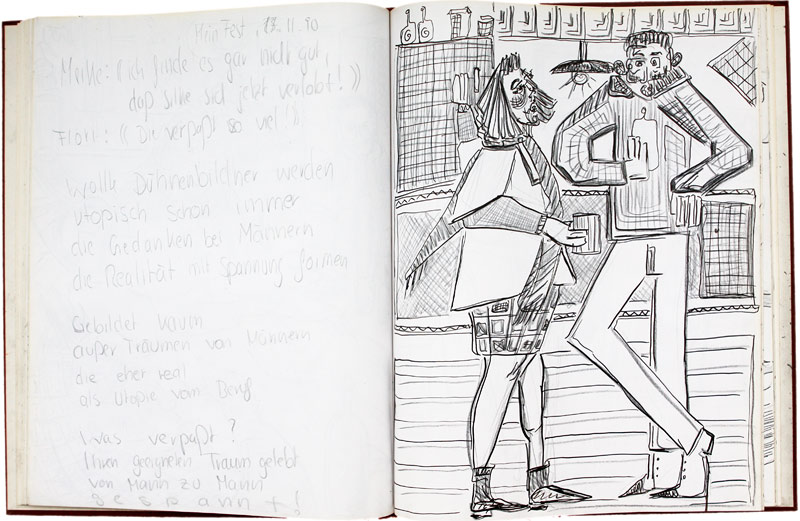 Mein Fest, 17.11.90
Meike: (( ich finde es gar nicht gut,
daß Silke sich jetzt verlobt! ))
Flori: (( Die verpaßt so viel! ))
Wollte Bühnenbildner werden
utopisch schon immer
die Gedanken bei Männern
die Realität mit Spannung formen
Gebildet kaum
außer Träumen von Männern
die eher real
als Utopie vom Beruf
Was verpaßt?
Ihren geeigneten Traum gelebt
von Mann zu Mann
gespannt!